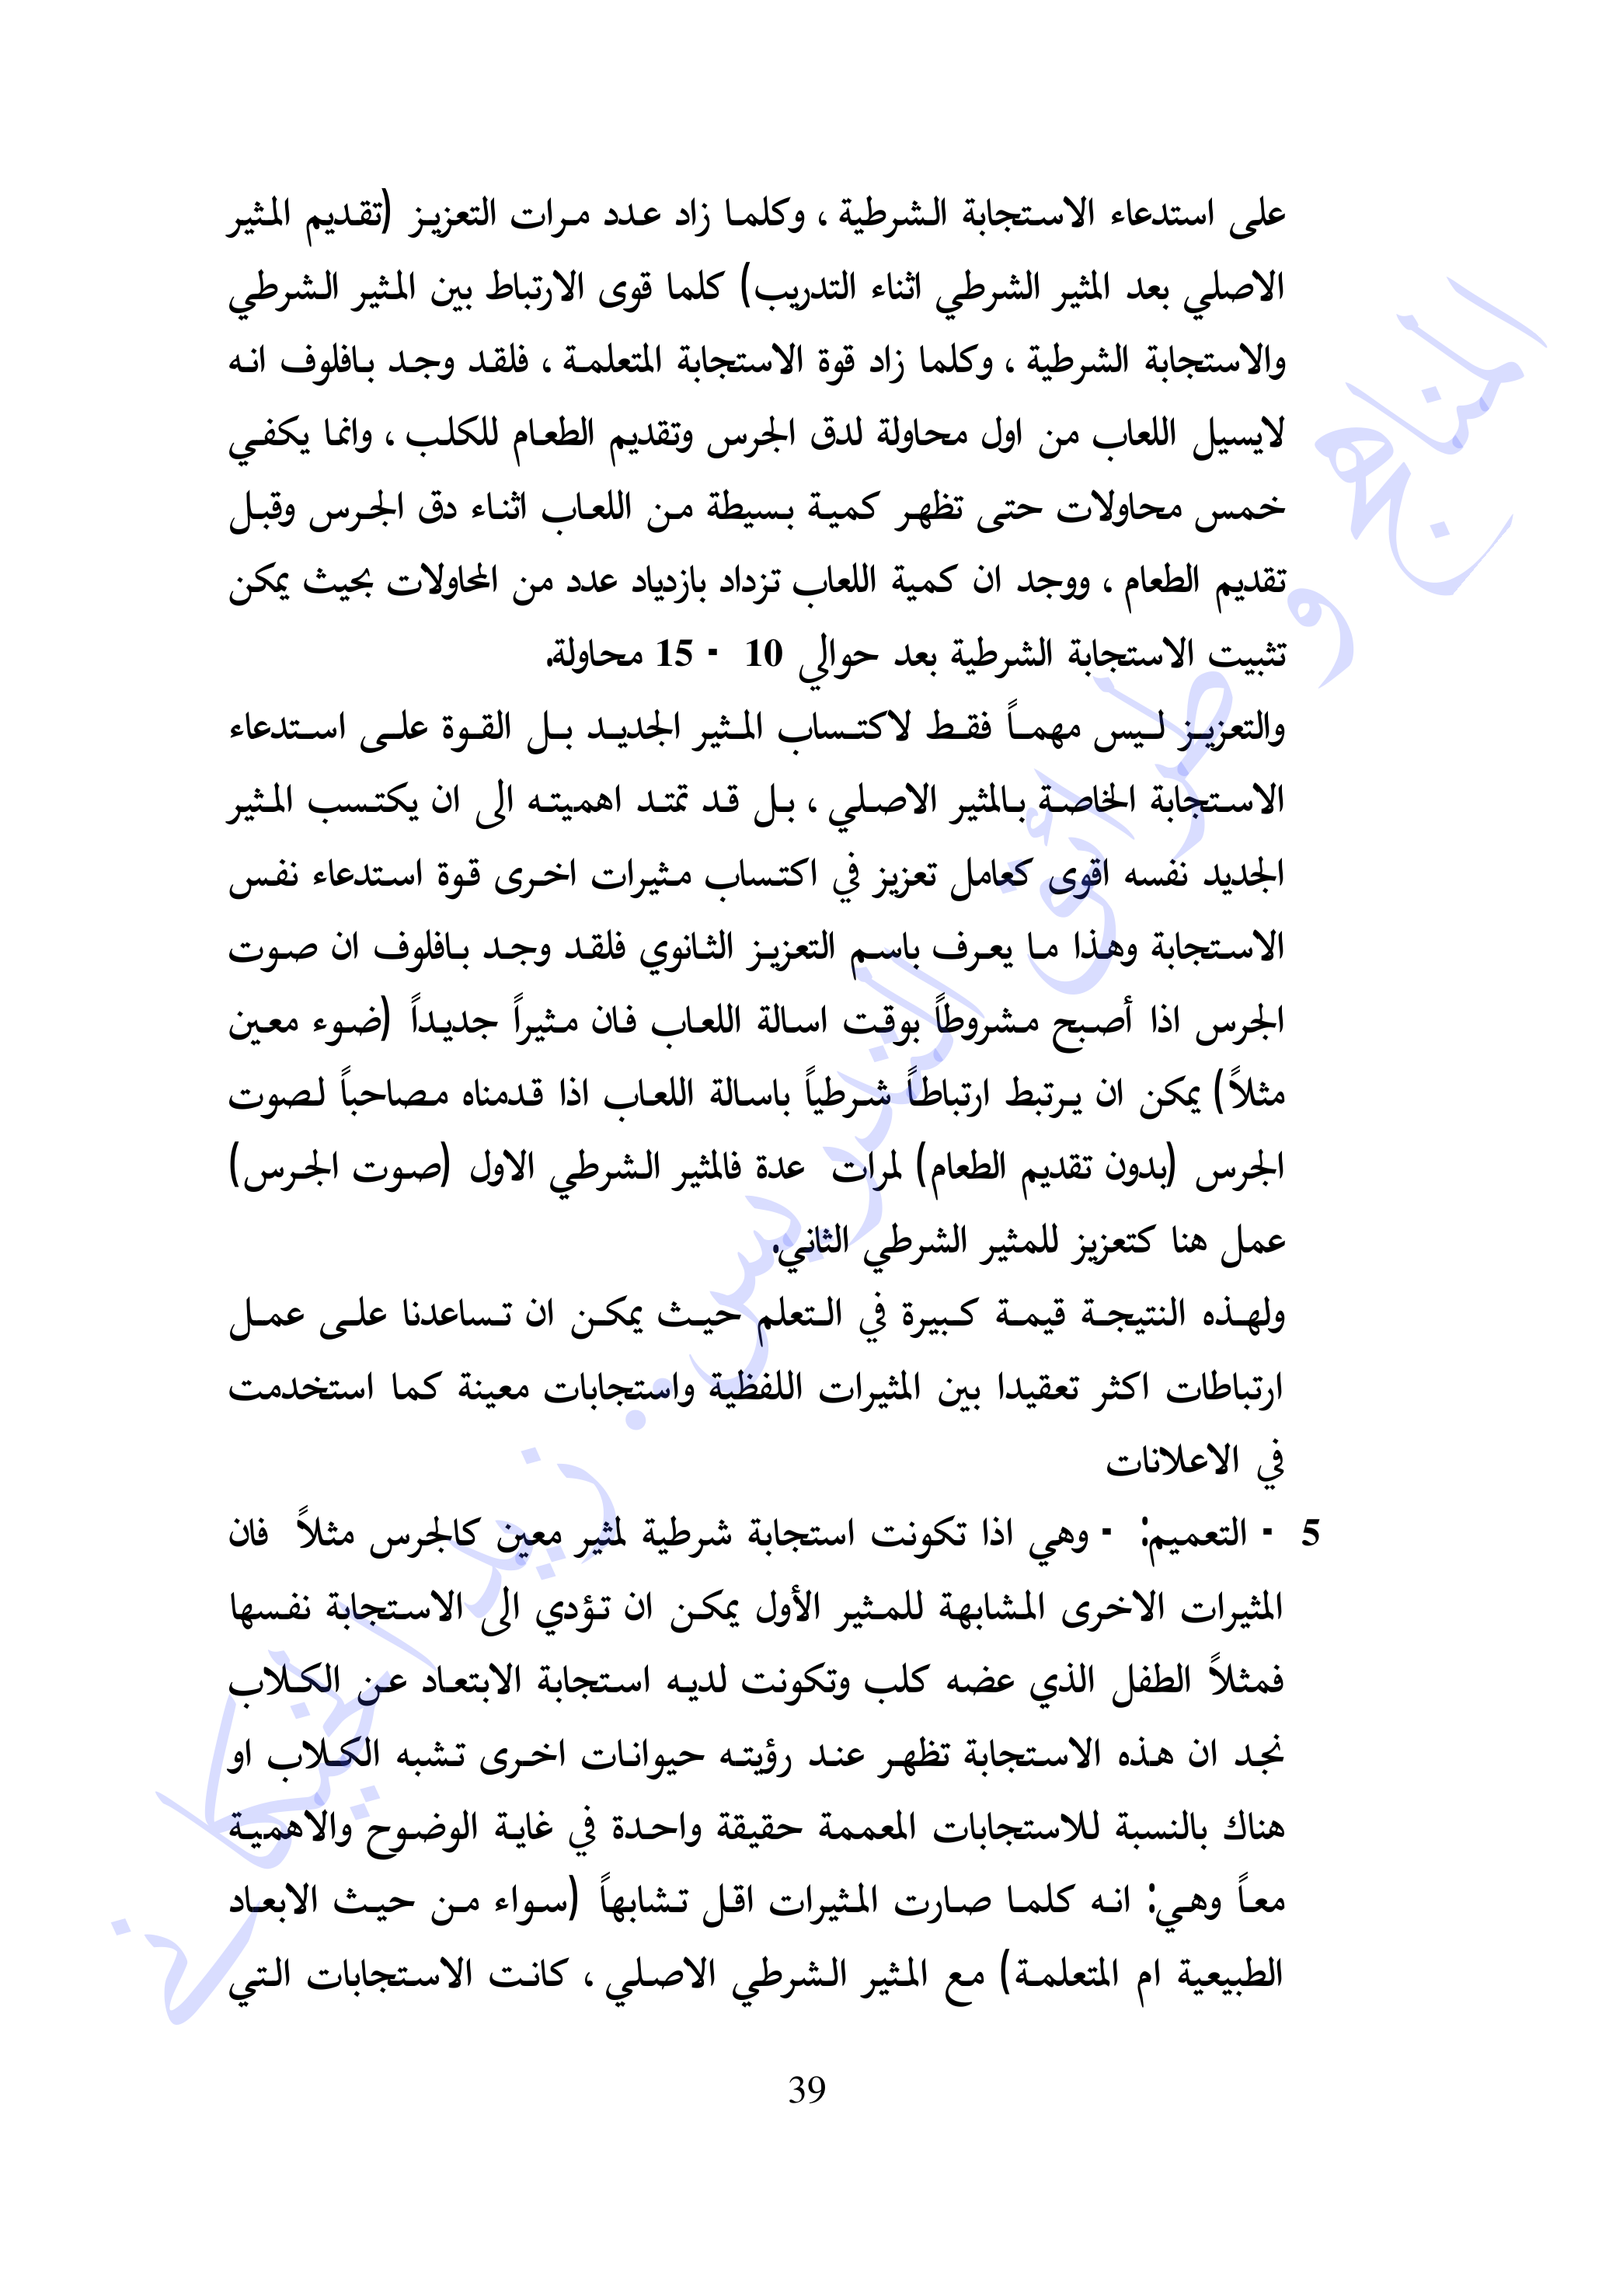 على استدعاء الاستجابة الشرطية ، وكلما زاد عدد مرات التعزيز (تقديم المثير
الاصلي بعد المثير الشرطي اثناء التدريب) كلما قوى الارتباط بين المثير الشرطي
والاستجابة الشرطية ، وكلما زاد قوة الاستجابة المتعلمة ، فلقد وجد بافلوف انه
لايسيل اللعاب من اول محاولة لدق الجرس وتقديم الطعام للكلب ، وانما يكفي
خمس محاولات حتى تظهر كمية بسيطة من اللعاب اثناء دق الجرس وقبل
تقديم الطعام ، ووجد ان كمية اللعاب تزداد بازدياد عدد من المحاولات بحيث يمكن
تثبيت الاستجابة الشرطية بعد حوالي 10 - 15 محاولة.
والتعزيز ليس مهماً فقط لاكتساب المثير الجديد بل القوة على استدعاء
الاستجابة الخاصة بالمثير الاصلي ، بل قد تمتد اهميته الى ان يكتسب المثير
الجديد نفسه اقوى كعامل تعزيز في اكتساب مثيرات اخرى قوة استدعاء نفس
الاستجابة وهذا ما يعرف باسم التعزيز الثانوي فلقد وجد بافلوف ان صوت
الجرس اذا أصبح مشروطاً بوقت اسالة اللعاب فان مثيراً جديداً (ضوء معين
مثلاً) يمكن ان يرتبط ارتباطاً شرطياً باسالة اللعاب اذا قدمناه مصاحباً لصوت
الجرس (بدون تقديم الطعام) لمرات عدة فالمثير الشرطي الاول (صوت الجرس)
عمل هنا كتعزيز للمثير الشرطي الثاني.
ولهذه النتيجة قيمة كبيرة في التعلم حيث يمكن ان تساعدنا على عمل
ارتباطات اكثر تعقيدا بين المثيرات اللفظية واستجابات معينة كما استخدمت
في الاعلانات
5 - التعميم: - وهي اذا تكونت استجابة شرطية لمثير معين كالجرس مثلاً فان
المثيرات الاخرى المشابهة للمثير الأول يمكن ان تؤدي الى الاستجابة نفسها
فمثلاً الطفل الذي عضه كلب وتكونت لديه استجابة الابتعاد عن الكلاب
نجد ان هذه الاستجابة تظهر عند رؤيته حيوانات اخرى تشبه الكلاب او
هناك بالنسبة للاستجابات المعممة حقيقة واحدة في غاية الوضوح والاهمية
معاً وهي: انه كلما صارت المثيرات اقل تشابهاً (سواء من حيث الابعاد
الطبيعية ام المتعلمة) مع المثير الشرطي الاصلي ، كانت الاستجابات التي
39
المناهج وطرائق التدريس. زيد الخيكاني